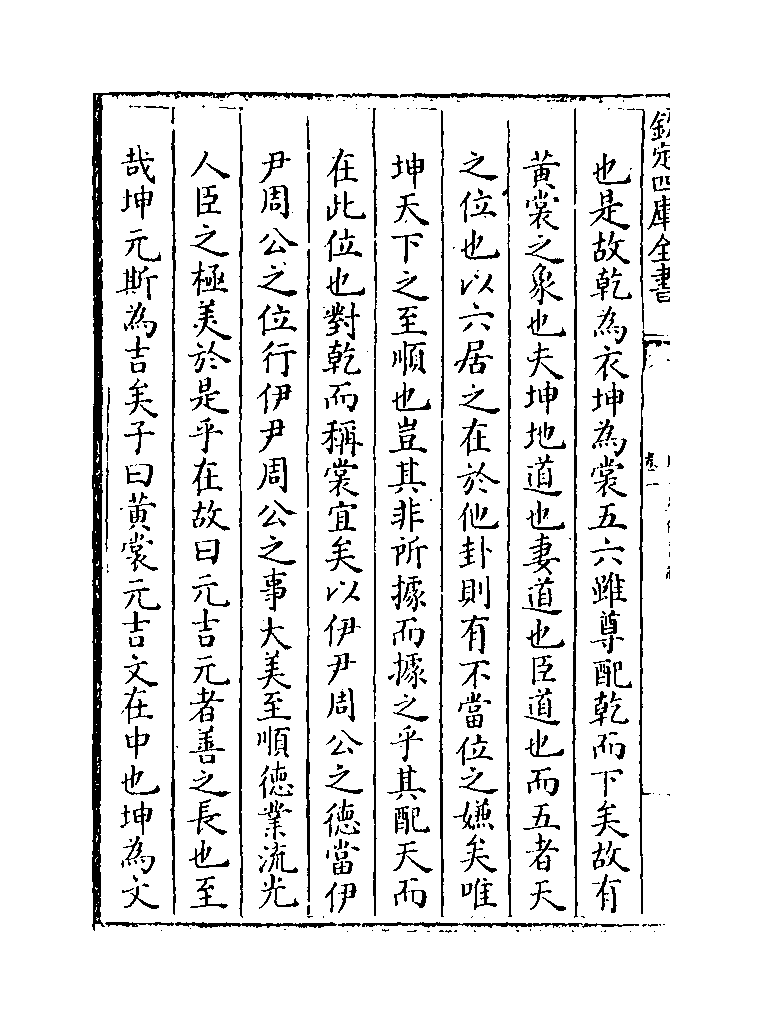 欽定四庫全書
卷一
也是故乾為衣坤為裳五六雖尊配乾而下矣故有
黃裳之象也夫坤地道也妻道也臣道也而五者天
之位也以六居之在於他卦則有不當位之嫌矣唯
坤天下之至順也豈其非所據而據之乎其配天而
在此位也對乾而稱裳宜矣以伊尹周公之德當伊
尹周公之位行伊尹周公之事大美至順德業流光
人臣之極美於是乎在故曰元吉元者善之長也至
哉坤元斯為吉矣子曰黃裳元吉文在中也坤為文